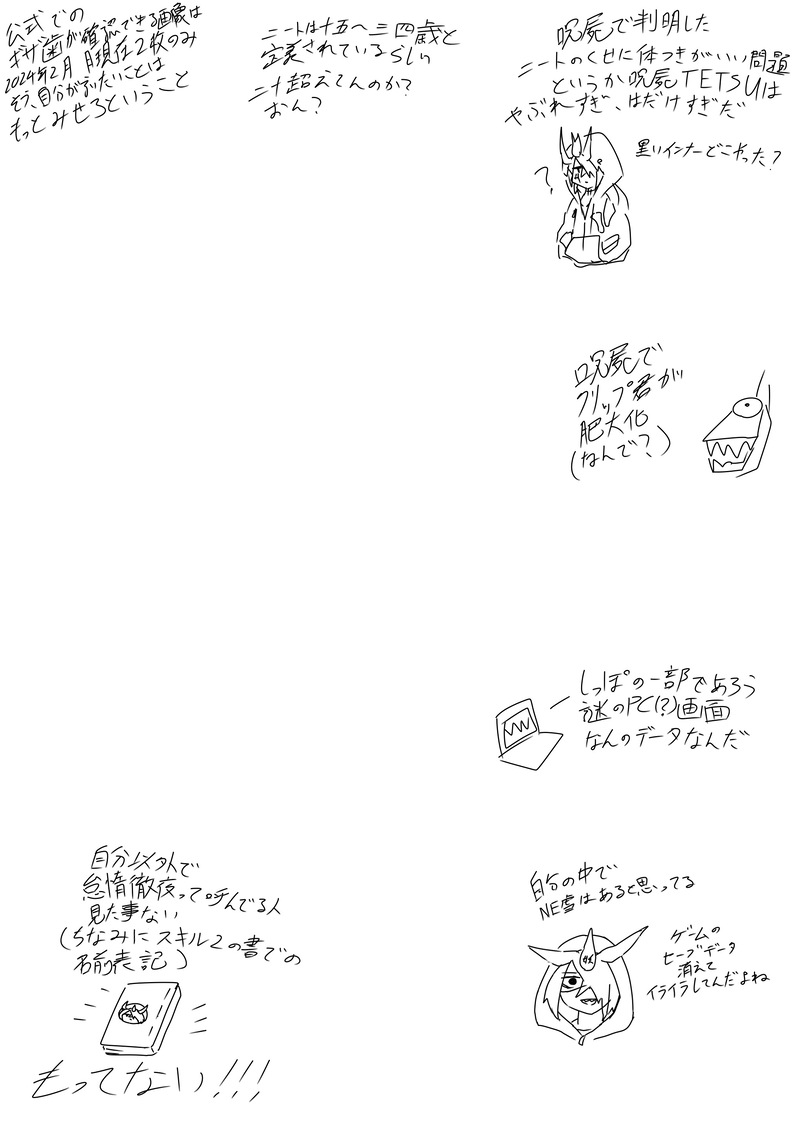 公式での
ギザ歯が確認できる画像は
2024年2月 現在2枚のみ
そう、自分が言いたいことは
もっとみせろということ
ニートは十五へ三四歳と
定義されているらしい
二十超えてんのか?
おん?
呪屍で判明した
ニートのくせに体つきがいい問題
というか呪屍TETSUは
やぶれすぎ、はだけすぎだ
黒いインナーどこやった?
?
呪屍で
フリップ君が
肥大化
(なんで?)
しっぽの一部であろう
謎のPC(?)画面
なんのデータなんだ
自分以外で
怠惰徹夜って呼んでる人
見た事ない
(ちなみにスキル2の書での
名前表記)
もってない!!!
自分の中で
NE虚はあると思ってる
ゲームの
セーブデータ
消えて
イライラしてんだよね